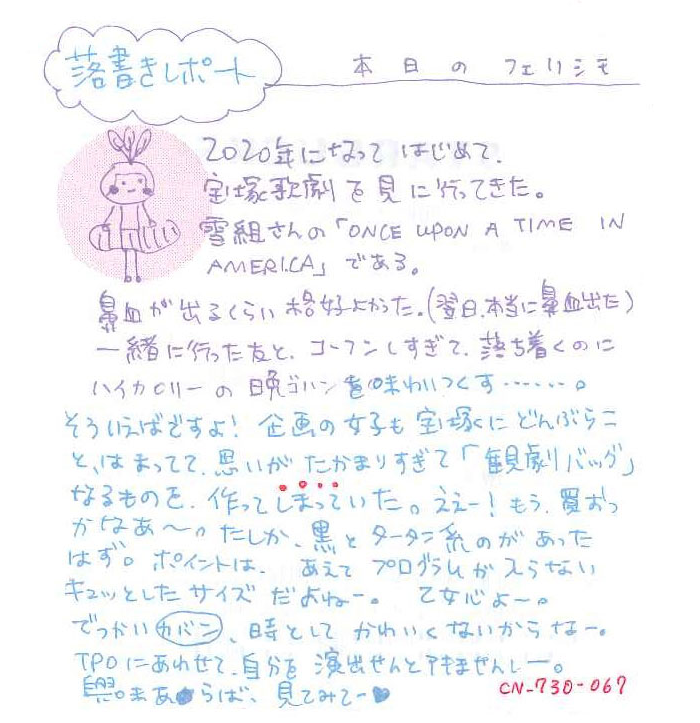 落書きレポート
本日のフェリシモ
2020年になってはじめて、
宝塚歌劇を見に行ってきた。
雪組さんの「ONCE UPON A TIME IN
AMERICA」である。
鼻血が出るくらい格好よかった。(翌日、本当に鼻血出た)
一緒に行った友と、コーフンしすぎて、落ち着くのに
ハイカロリーの晩ゴハンを味わいつくす……。
そういえばですよ!企画の女子も宝塚にどんぶらこ
と、はまってて、思いがたかまりすぎて「観劇バッグ」
なるものを、作ってしまっていた。ええー!もう、買おっ
かなあ〜。たしか、黒とタータン系のがあった
はず。ポイントは、あえてプログラムが入らない
キュッとしたサイズだよねー。乙女心よ〜。
でっかいカバン、時としてかわいくないからなー。
TPOにあわせて、自分を演出せんとアキませんしー。
興。まあ らば、見てみてー
CN-730-067